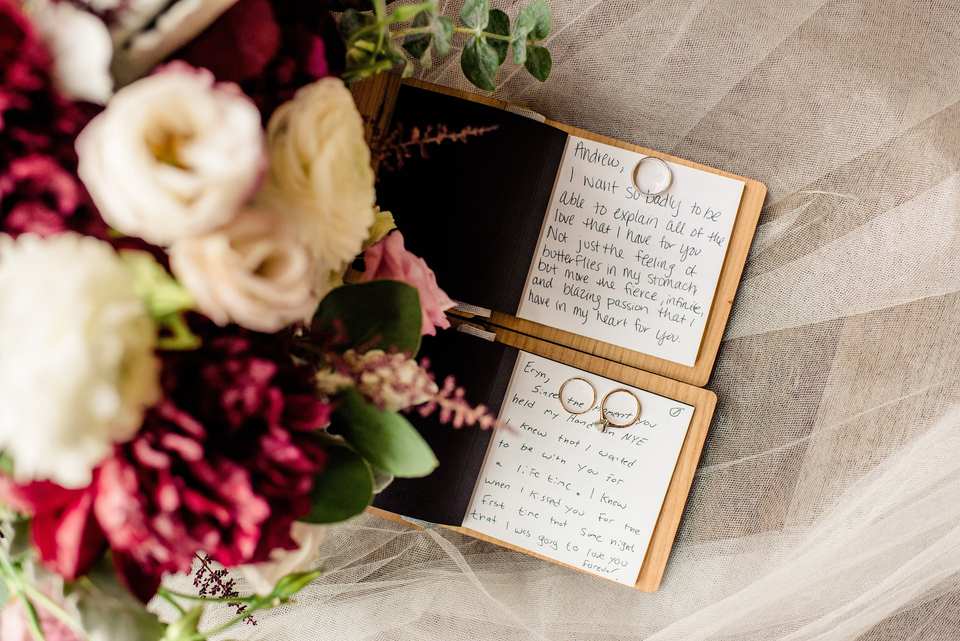 Andrew,
I want so badly to be
able to explain all of the
love that I have for you
Not just the feeling of
butterflies in my stomach
but more the fierce, infinite,
and blazing passion that I
have in my heart for you.
Eryn,
Since the moment you
held my hand on NYE
I knew that I wanted
to be with you for
a life time. I knew
when I kissed you for the
first time that same night
that I was going to love you
forever.